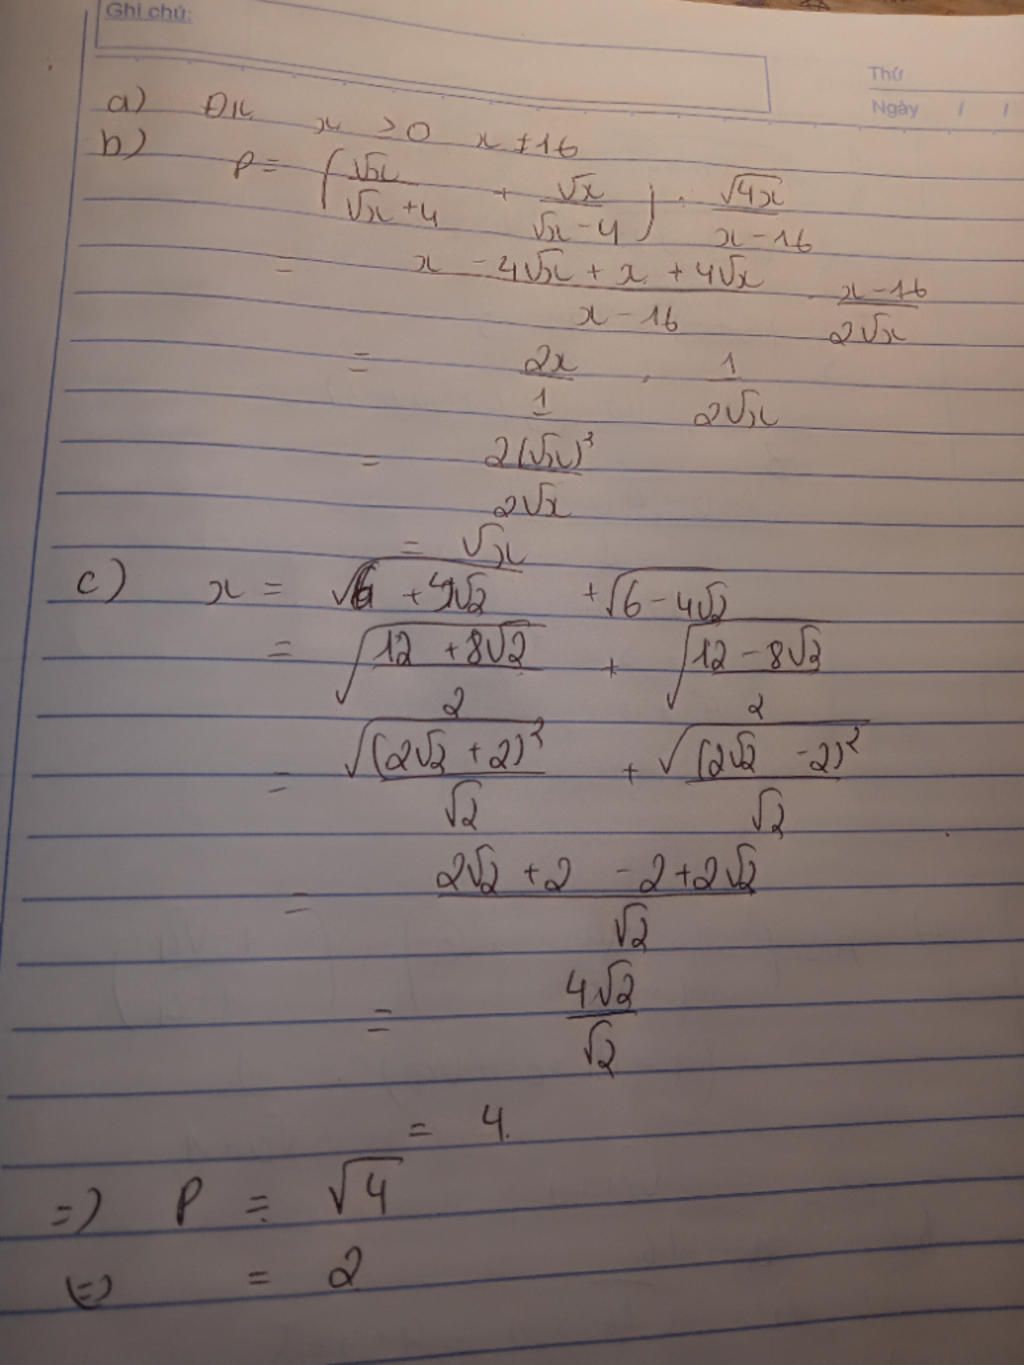 Ghi chú:
Thứ
Ngày / /
a) ĐK x > 0 x ≠ 16
b) P = (√x/(√x + 4) + √x/(√x - 4)) : √4x/(x - 16)
= (x - 4√x + x + 4√x)/(x - 16) . (x - 16)/(2√x)
= 2x/1 . 1/(2√x)
= 2(√x)³/(2√x)
= √x
c) x = √(6 + 4√2) + √(6 - 4√2)
= √((12 + 8√2)/2) + √((12 - 8√2)/2)
= √((2√2 + 2)²)/√2 + √((2√2 - 2)²)/√2
= (2√2 + 2 - 2 + 2√2)/√2
= 4√2/√2
= 4.
=> P = √4
<=> = 2